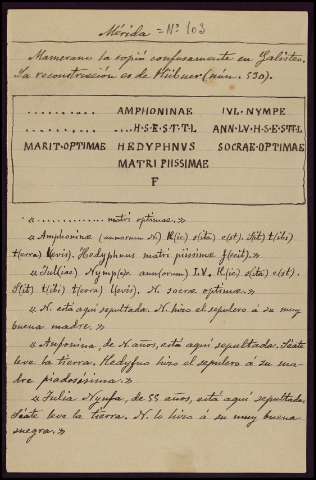 Mérida = Nº 103
Mamerano la copió confusamente en Galisteo.
La reconstrucción es de Hübner (núm. 530).
.......... AMPHONINAE IVL·NYMPE
.......... ....H·S·E·S·T·T·L ANN·LV·H·S·E·S·T·T·L
MARIT·OPTIMAE HEDYPHNVS SOCRAE·OPTIMAE
MATRI PIISSIMAE
F
« .............. matri optimae. »
« Amphoninæ (annorum N) H(ic) s(ita) e(st). S(it) t(ibi)
t(erra) l(evis). Hedyphnus matri piissimæ f(ecit). »
« Iul(iae) Nymp(h)e ann(orum) LV. H(ic) s(ita) e(st).
S(it) t(ibi) t(erra) l(evis). N. socræ optimæ. »
« N. está aquí sepultada. N. hizo el sepulcro á su muy
buena madre. »
« Anfonina, de N. años, está aquí sepultada. Séate
leve la tierra. Hedyfno hizo el sepulcro á su ma-
dre piadosísima. »
« Julia Nynfa, de 55 años, está aquí sepultada.
Séate leve la tierra. N. lo hizo á su muy buena
suegra. »